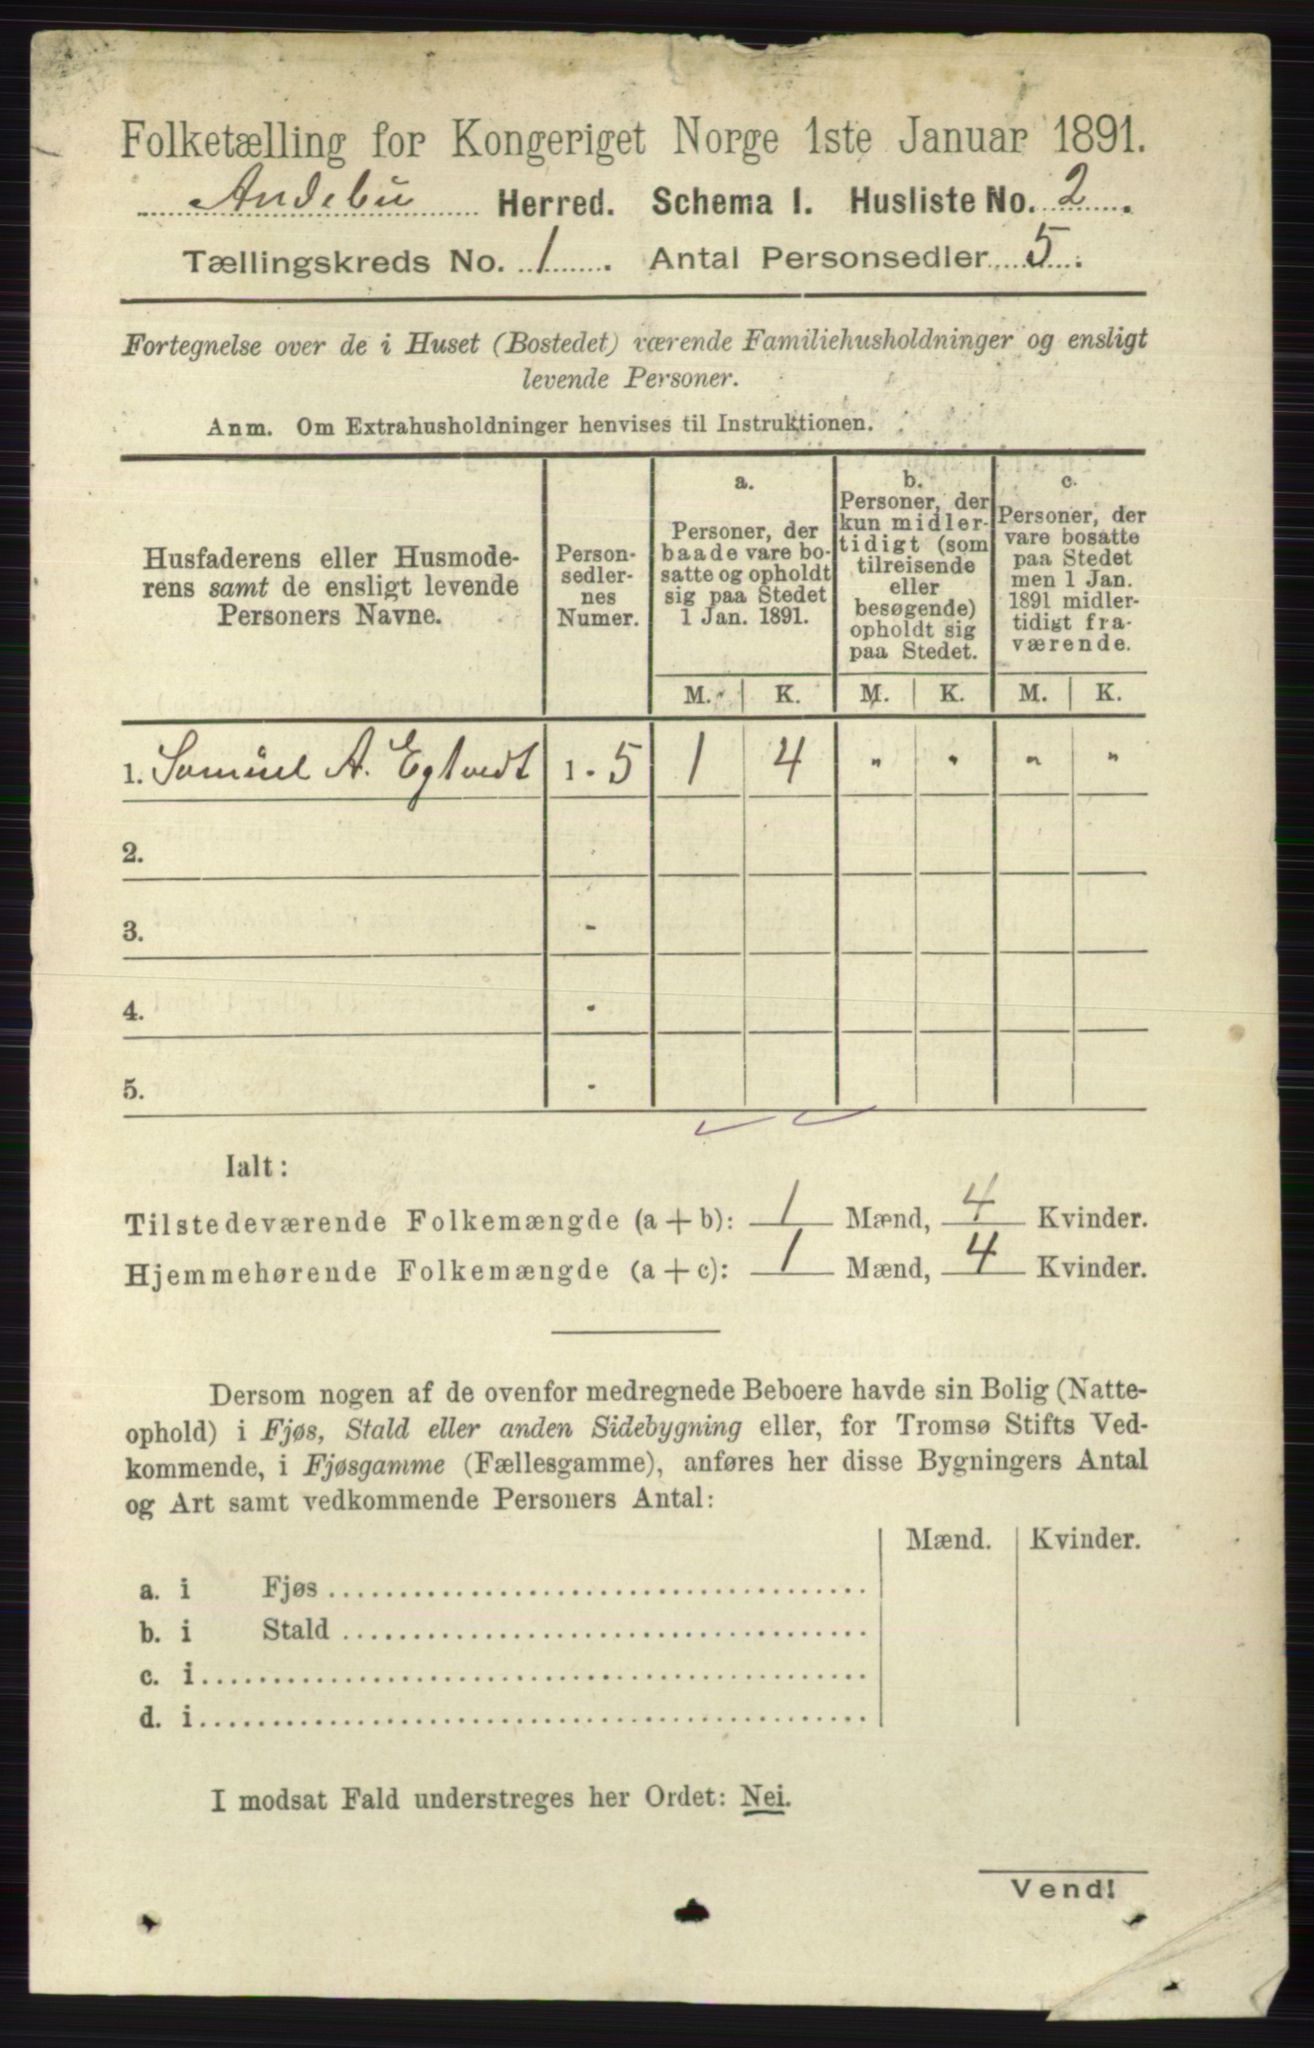 Folketælling for Kongeriget Norge 1ste Januar 1891.
Andebu Herred. Schema I. Husliste No. 2.
Tællingskreds No. 1. Antal Personsedler 5.
Fortegnelse over de i Huset (Bostedet) værende Familiehusholdninger og ensligt
levende Personer.
Anm. Om Extrahusholdninger henvises til Instruktionen.
Husfaderens eller Husmode-
rens samt de ensligt levende
Personers Navne.
Person-
sedler-
nes
Numer.
a.
Personer, der
baade vare bo-
satte og opholdt
sig paa Stedet
1 Jan. 1891.
b.
Personer, der
kun midler-
tidigt (som
tilreisende
eller
besøgende)
opholdt sig
paa Stedet.
c.
Personer, der
vare bosatte
paa Stedet
men 1 Jan.
1891 midler-
tidigt fra-
værende.
M. K. M. K. M. K.
1. Samuel A. Egtvedt 1 - 5 1 4 " " " "
2.
3. -
4. -
5. -
Ialt:
Tilstedeværende Folkemængde (a + b): 1 Mænd, 4 Kvinder.
Hjemmehørende Folkemængde (a + c): 1 Mænd, 4 Kvinder.
Dersom nogen af de ovenfor medregnede Beboere havde sin Bolig (Natte-
ophold) i Fjøs, Stald eller anden Sidebygning eller, for Tromsø Stifts Ved-
kommende, i Fjøsgamme (Fællesgamme), anføres her disse Bygningers Antal
og Art samt vedkommende Personers Antal:
Mænd. Kvinder.
a. i Fjøs
b. i Stald
c. i
d. i
I modsat Fald understreges her Ordet: Nei.
Vend!